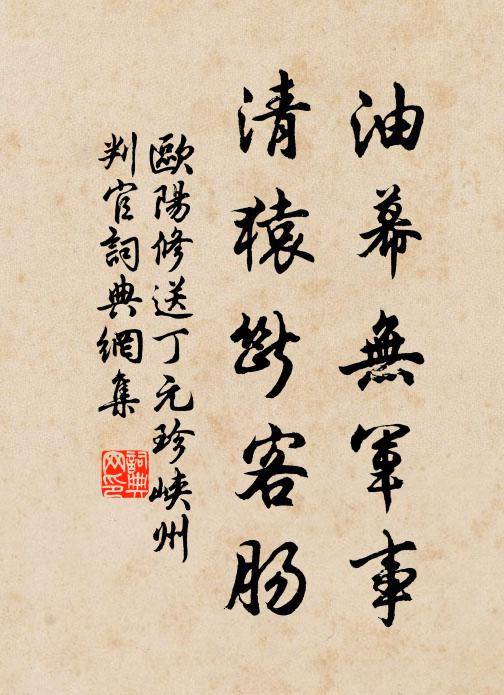 油幕無軍事
清猿斷客肠
歐陽修送丁元珍峡州
判官詞典網集
詞典
网印